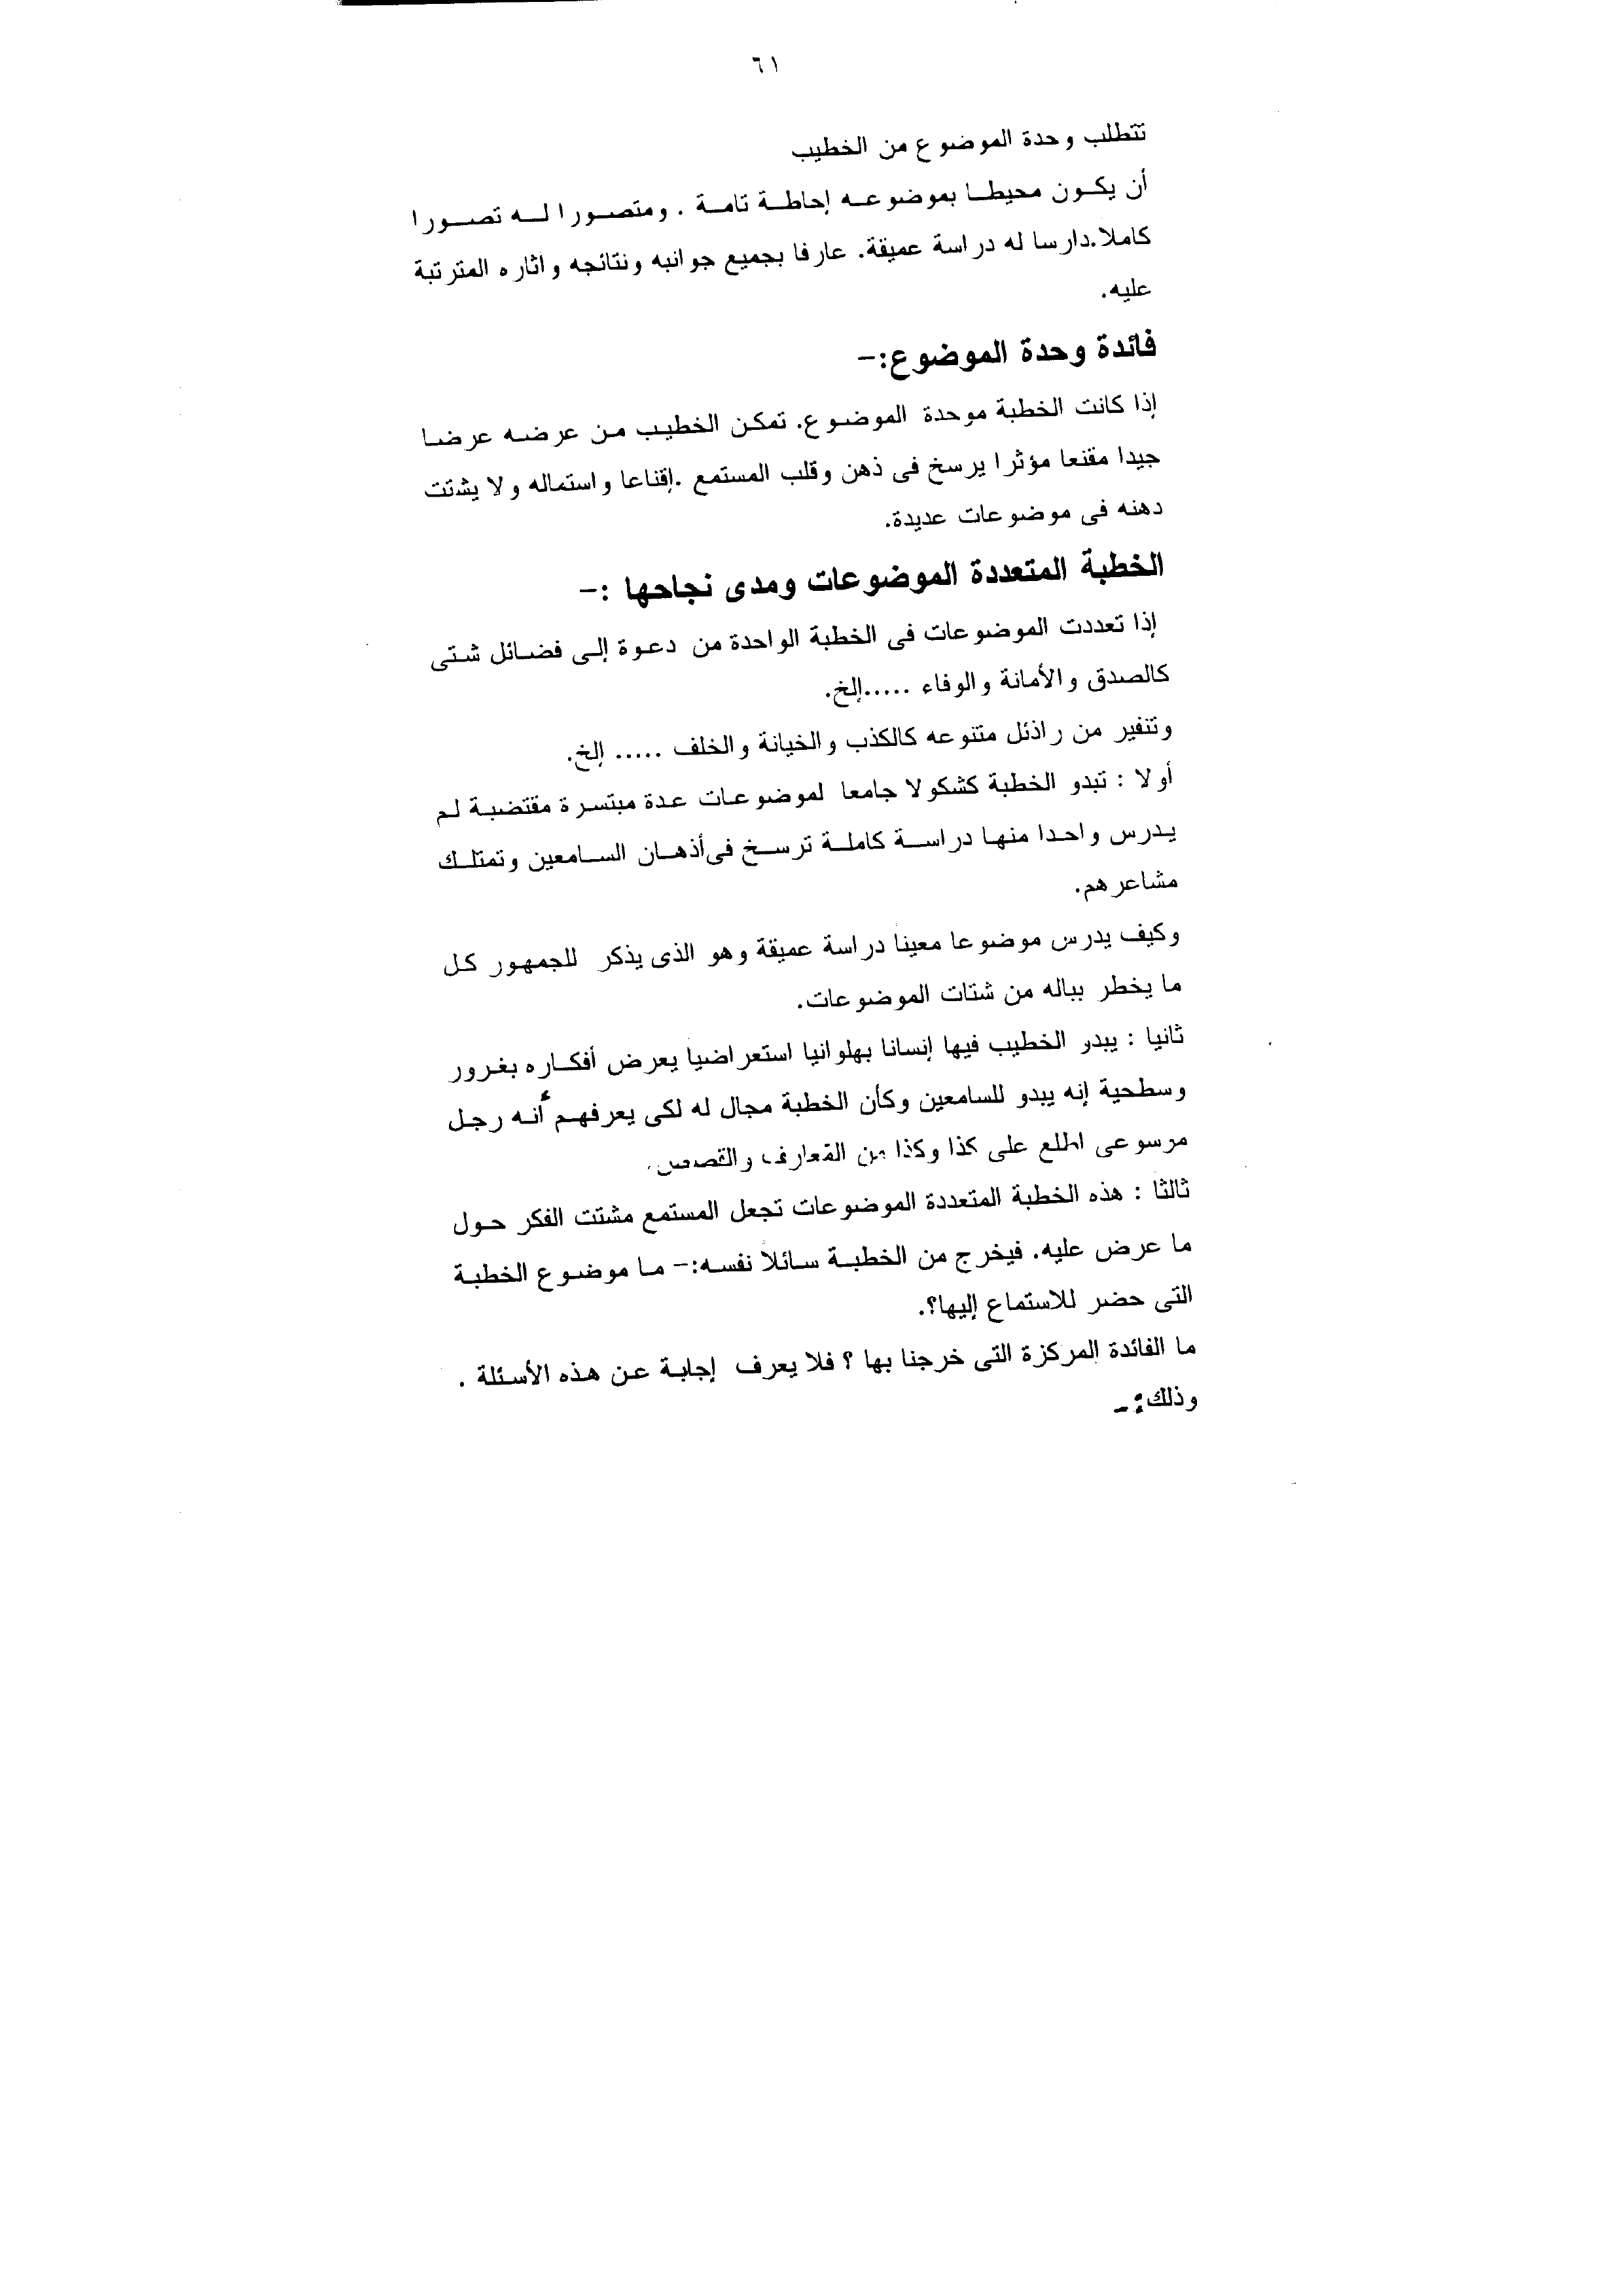 ٦١
تتطلب وحدة الموضوع من الخطيب
أن يكون محيطا بموضوعه إحاطة تامة . ومتصورا له تصورا
كاملا.دارسا له دراسة عميقة. عارفا بجميع جوانبه ونتائجه واثاره المترتبة
عليه.
فائدة وحدة الموضوع:-
إذا كانت الخطبة موحدة الموضوع. تمكن الخطيب من عرضه عرضا
جيدا مقنعا مؤثرا يرسخ فى ذهن وقلب المستمع .إقناعا واستماله ولا يشتت
دهنه فى موضوعات عديدة.
الخطبة المتعددة الموضوعات ومدى نجاحها :-
إذا تعددت الموضوعات فى الخطبة الواحدة من دعوة إلى فضائل شتى
كالصدق والأمانة والوفاء .....إلخ.
وتنفير من راذئل متنوعه كالكذب والخيانة والخلف ..... إلخ.
أولا : تبدو الخطبة كشكولا جامعا لموضوعات عدة مبتسرة مقتضبة لم
يدرس واحدا منها دراسة كاملة ترسخ فى أذهان السامعين وتمتلك
مشاعرهم.
وكيف يدرس موضوعا معينا دراسة عميقة وهو الذى يذكر للجمهور كل
ما يخطر بباله من شتات الموضوعات.
ثانيا : يبدو الخطيب فيها إنسانا بهلوانيا استعراضيا يعرض أفكاره بغرور
وسطحية إنه يبدو للسامعين وكأن الخطبة مجال له لكى يعرفهم أنه رجل
مرسوعى اطلع على كذا وكذا من المعارف والقصص.
ثالثا : هذه الخطبة المتعددة الموضوعات تجعل المستمع مشتت الفكر حول
ما عرض عليه. فيخرج من الخطبة سائلا نفسه:- ما موضوع الخطبة
التى حضر للاستماع إليها؟.
ما الفائدة المركزة التى خرجنا بها ؟ فلا يعرف إجابة عن هذه الأسئلة .
وذلك:-